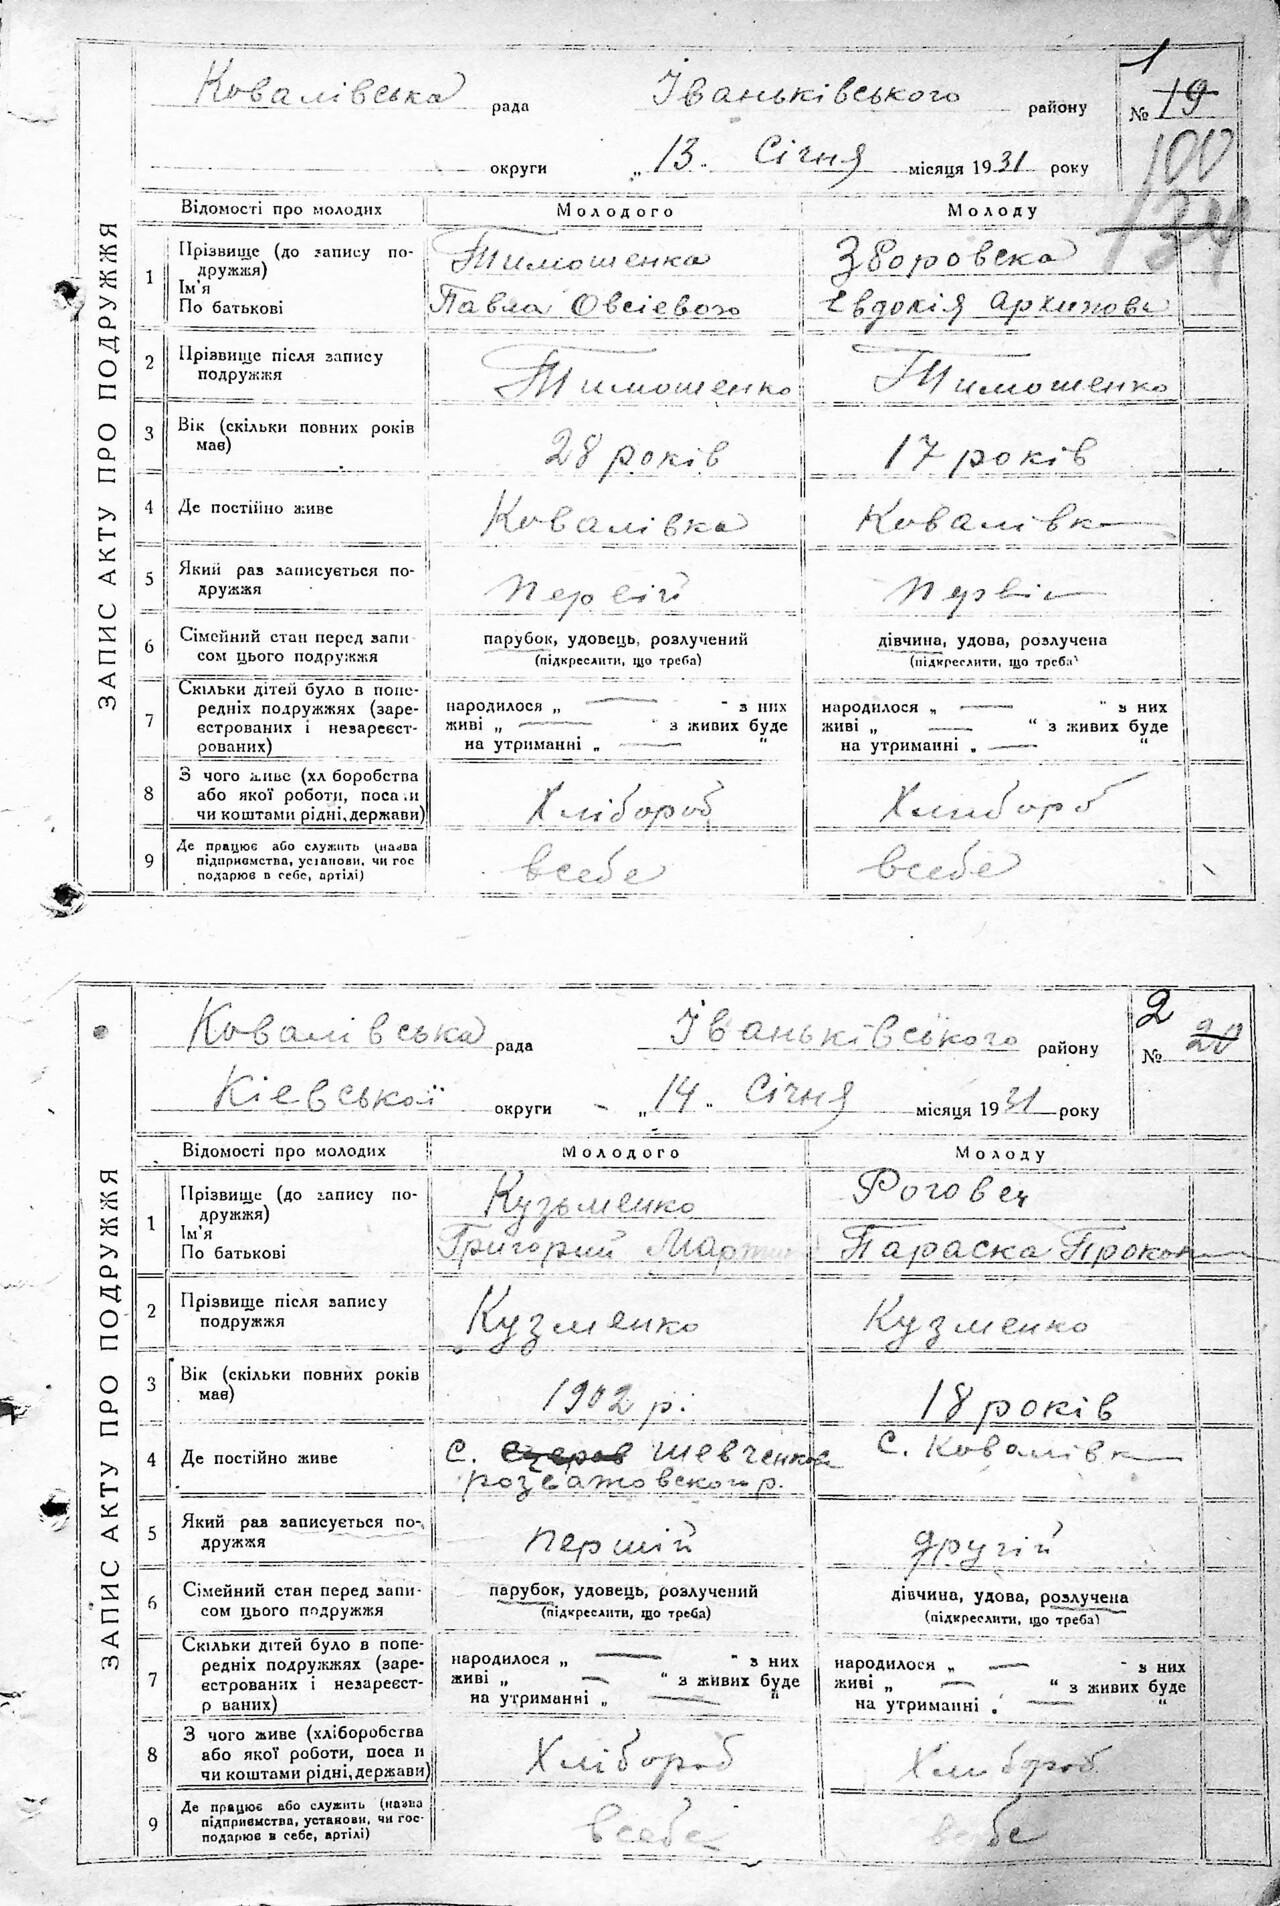 ЗАПИС АКТУ ПРО ПОДРУЖЖЯ
Ковалівська рада Іваньківського району
№ 1 19
100
134
округи „13. Січня місяця 1931 року
Відомості про молодих Молодого Молоду
1 Прізвище (до запису по-
дружжя)
Ім'я
По батькові
Тимошенка
Павла Овсієвого
Зборовска
Євдокія Архипова
2 Прізвище після запису
подружжя
Тимошенко Тимошенко
3 Вік (скільки повних років
має)
28 років 17 років
4 Де постійно живе Ковалівка Ковалівк
5 Який раз записується по-
дружжя
первій перві
6 Сімейний стан перед запи-
сом цього подружжя
парубок, удовець, розлучений
(підкреслити, що треба)
дівчина, удова, розлучена
(підкреслити, що треба)
7 Скільки дітей було в попе-
редніх подружжях (заре-
єстрованих і незареєст-
рованих)
народилося „ — " з них
живі „ — " з живих буде
на утриманні „ — "
народилося „ — " з них
живі „ — “ з живих буде
на утриманні „ — “
8 З чого живе (хл боробства
або якої роботи, поса и
чи коштами рідні, держави)
Хлібороб Хлибороб
9 Де працює або служить (назва
підприємства, установи, чи гос
подарює в себе, артілі)
всебе всебе
ЗАПИС АКТУ ПРО ПОДРУЖЖЯ
Ковалівська рада Іваньківського району
№ 2 20
Кіевської округи „14" Січня місяця 1931 року
Відомості про молодих Молодого Молоду
1 Прізвище (до запису по-
дружжя)
Ім'я
По батькові
Кузьменко
Григорий
Роговец
Параска Прокоп
2 Прізвище після запису
подружжя
Кузменко Кузменко
3 Вік (скільки повних років
має)
1902 р. 18 років
4 Де постійно живе
с. Шевченкове
розважовского р.
с. Ковалівк
5 Який раз записується по-
дружжя
першій другій
6 Сімейний стан перед запи-
сом цього подружжя
парубок, удовець, розлучений
(підкреслити, що треба)
дівчина, удова, розлучена
(підкреслити, що треба)
7 Скільки дітей було в попе-
редніх подружжях (заре-
єстрованих і незареєст-
р ваних)
народилося „ — " з них
живі „ — “ з живих буде
на утриманні „ — "
народилося „ — " з них
живі „ — “ з живих буде
на утриманні — “
8 З чого живе (хліборобства
або якої роботи, поса и
чи коштами рідні, держави)
Хлібороб Хлибороб
9 Де працює або служить (назва
підприємства, установи, чи гос-
подарює в себе, артілі)
всебе всебе